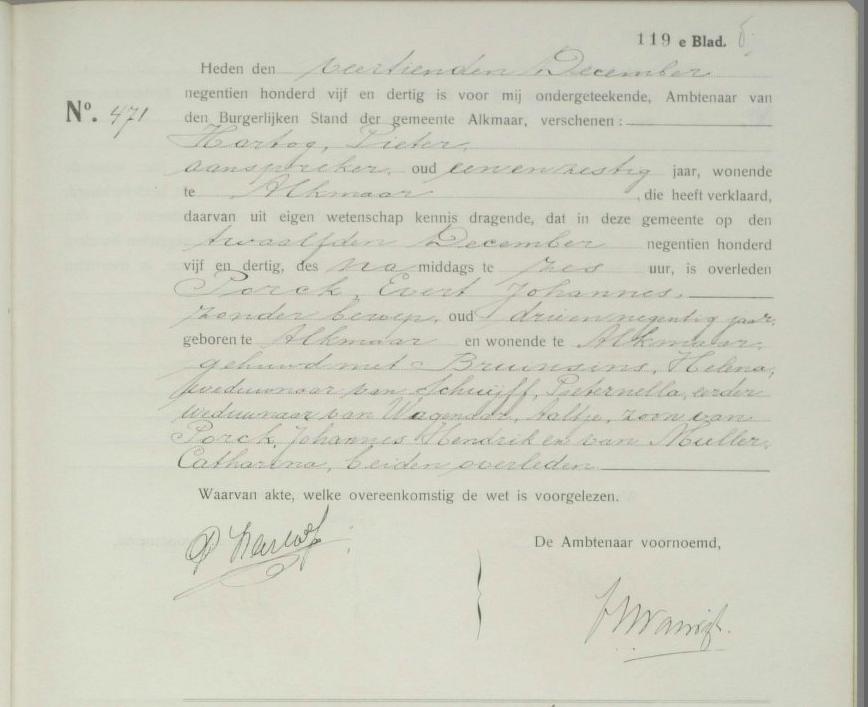 119 e Blad.
Heden den veertienden December
negentien honderd vijf en dertig is voor mij ondergeteekende, Ambtenaar van
No. 471
den Burgerlijken Stand der gemeente Alkmaar, verschenen :
Hartog, Pieter,
aanspreker, oud eenenzestig jaar, wonende
te Alkmaar, die heeft verklaard,
daarvan uit eigen wetenschap kennis dragende, dat in deze gemeente op den
twaalfden December negentien honderd
vijf en dertig, des na middags te zes uur, is overleden
Porck, Evert Johannes,
zonder beroep, oud drieennegentig jaar,
geboren te Alkmaar en wonende te Alkmaar,
gehuwd met Bruinsins, Helena,
weduwnaar van Schuijff, Pieternella, eerder
weduwnaar van Wagenaar, Aaltje, zoon van
Porck, Johannes Hendrik en van Muller,
Catharina, beiden overleden
Waarvan akte, welke overeenkomstig de wet is voorgelezen.
P Hartog
De Ambtenaar voornoemd,